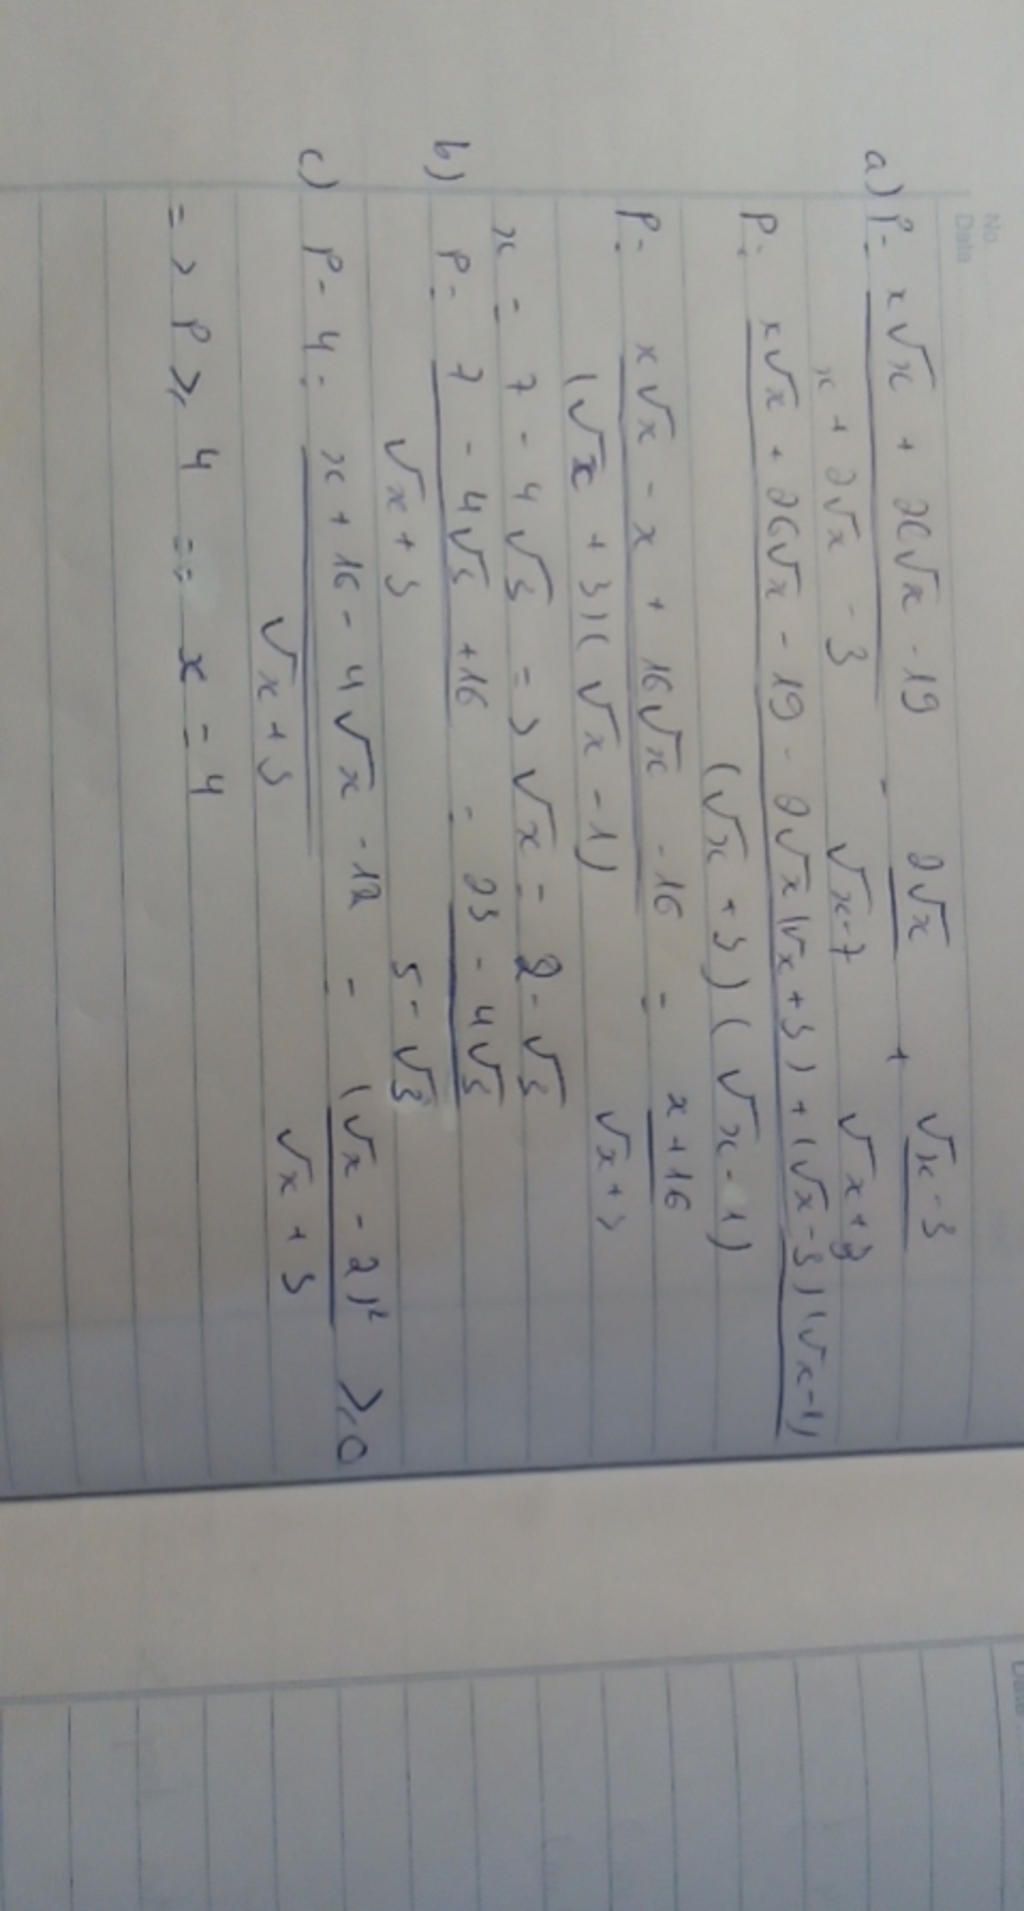 No.
Date
a) P = x√x + 26√x - 19 / x + 2√x - 3 - 2√x / √x - 7 + √x - 3 / √x + 3
P = x√x + 26√x - 19 - 2√x(√x + 3) + (√x - 3)(√x - 1) / (√x + 3)(√x - 1)
P = x√x - x + 16√x - 16 / (√x + 3)(√x - 1) = x + 16 / √x + 3
x = 7 - 4√3 => √x = 2 - √3
b) P = 7 - 4√3 + 16 / √x + 3 = 23 - 4√3 / 5 - √3
c) P - 4 = x + 16 - 4√x - 12 / √x + 3 = (√x - 2)² / √x + 3 ⩾ 0
=> P ⩾ 4 == x = 4